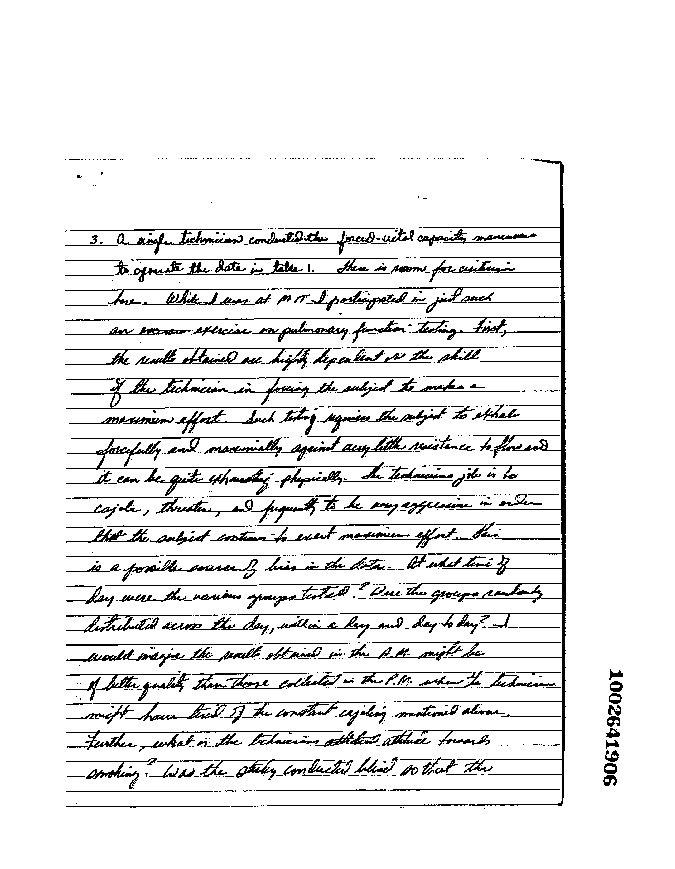 3. A single technician conducted the forced-vital capacity maneuvers
to generate the data in table 1. There is room for criticism
here. While I was at MIT I participated in just such
an exercise on pulmonary function testing. First,
the results obtained are highly dependent on the skill
of the technician in forcing the subject to make a
maximum effort. Such testing requires the subject to exhale
forcefully and maximally against very little resistance to flow and
it can be quite exhausting physically. The technicians job is to
cajole, threaten, and frequently to be very aggressive in order
that the subject continue to exert maximum effort. This
is a possible source of bias in the data. At what time of
day were the various groups tested? Were the groups randomly
distributed across the day, within a day and day to day? I
would imagine the results obtained in the A.M. might be
of better quality than those collected in the P.M. when the technician
might have tired of the constant cajoling mentioned above.
Further, what is the technicians attitude towards
smoking? Was the study conducted blind so that the
1002641906